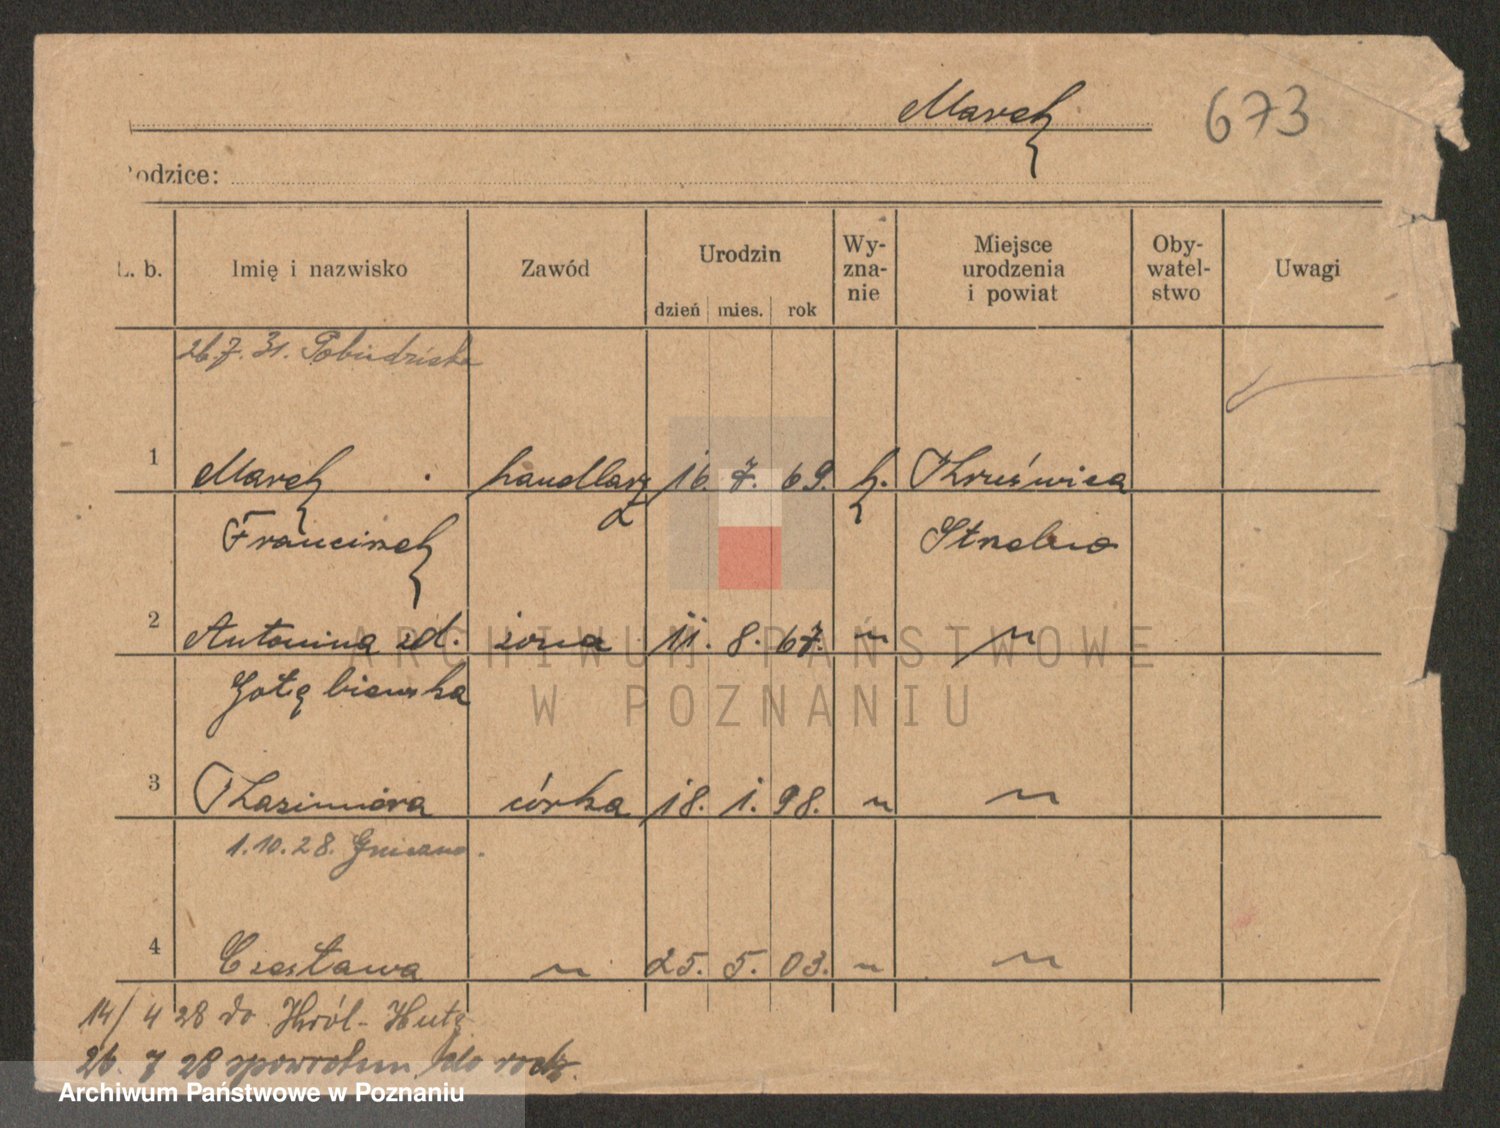 Marek
673
Rodzice:
L. b. Imię i nazwisko Zawód Urodzin dzień mies. rok Wy-zna-nie Miejsce urodzenia i powiat Oby-watel-stwo Uwagi
26.7.31. Pobiedziska
1 Marek handlarz 16. 7. 69. k. Kruświca
Franciszek Strzelno
2 Antonina zd. żona 11. 8. 67. " "
Gołębiewska
3 Kazimiera córka 18. 1. 98. " "
1.10.28. Gniezno.
4 Czesława " 25. 5. 03. " "
14/4 28 do Król-Hutę
26. 7 28 spowrotem do rodz.
ARCHIWUM PAŃSTWOWE
W POZNANIU
Archiwum Państwowe w Poznaniu